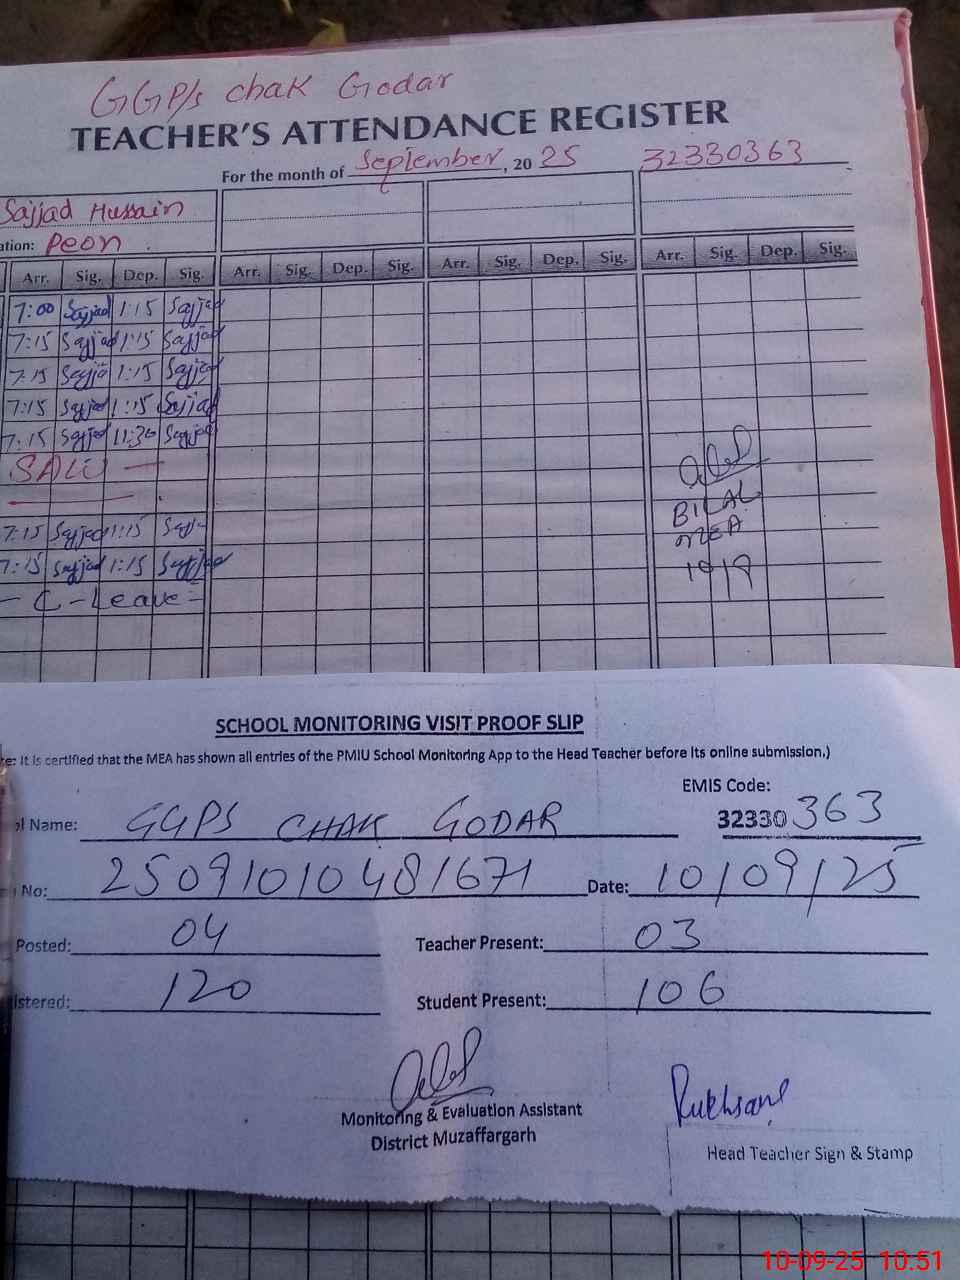 GGP/s chak Godar
TEACHER'S ATTENDANCE REGISTER
For the month of September, 2025 32330363
Sajjad Hussain
ation: Peon
Arr. Sig. Dep. Sig. Arr. Sig. Dep. Sig. Arr. Sig. Dep. Sig. Arr. Sig. Dep. Sig.
7:00 Sajjad 1:15 Sajjad
7:15 Sajjad 1:15 Sajjad
7:15 Sajjad 1:15 Sajjad
7:15 Sajjad 1:15 Sajjad
7:15 Sajjad 11:30 Sajjad
BILAL
MEA
7:15 Sajjad 1:15
7:15 Sajjad 1:15 Sajjad
10/9
- C - Leave =
SCHOOL MONITORING VISIT PROOF SLIP
te: It is certified that the MEA has shown all entries of the PMIU School Monitoring App to the Head Teacher before its online submission.)
EMIS Code:
ol Name: GGPS CHAK GODAR 32330363
No: 25091010481671 Date: 10/09/25
Posted: 04 Teacher Present: 03
istered: 120 Student Present: 106
Monitoring & Evaluation Assistant
District Muzaffargarh
Rukhsana
Head Teacher Sign & Stamp
10-09-25 10.51